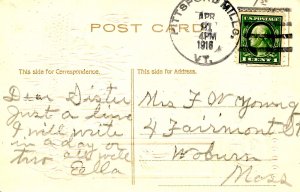 PITTSFORD MILLS,
APR
4PM
1916
VT.
U.S. POSTAGE
1 CENT 1
POST CARD
This side for Correspondence.
This side for Address.
Dear Sister
Just a line
I will write
in a day or
two all well
Ella
Mrs F W Young
4 Fairmont St
Woburn
Mass